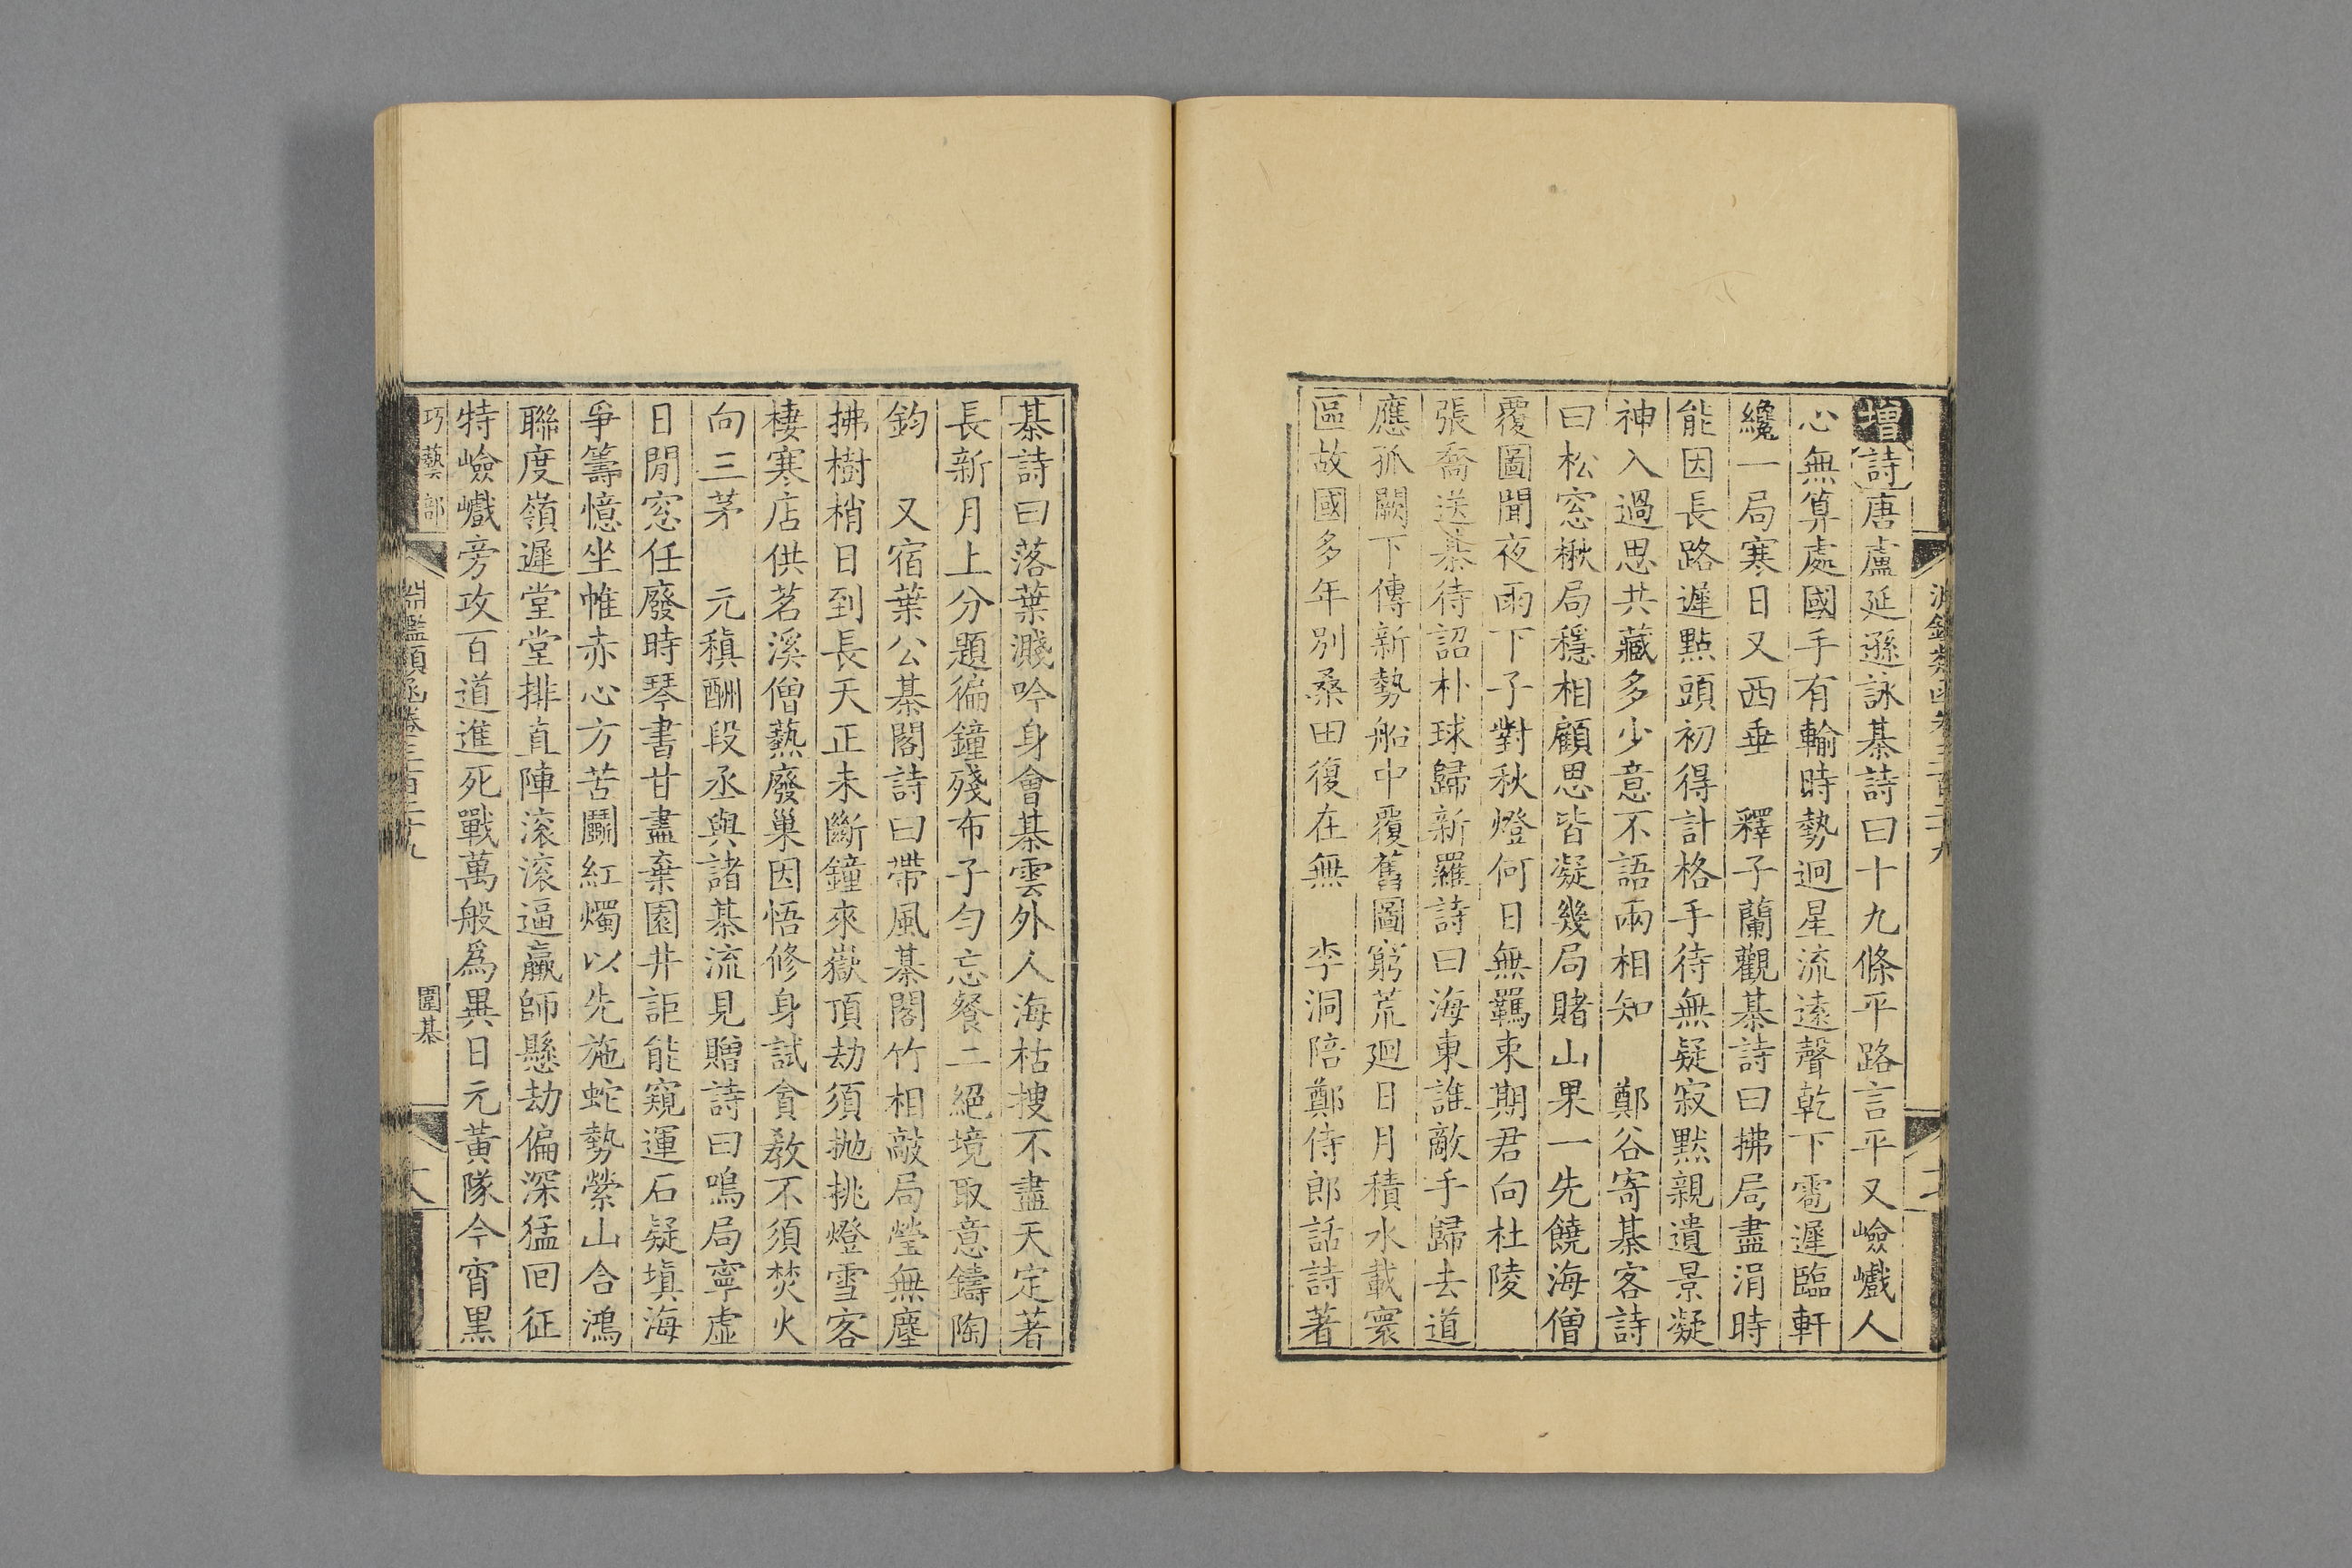 增詩唐盧延遜詠棊詩曰十九條平路言平又嶮巇人
心無算處國手有輸時勢迥星流遠聲乾下雹遲臨軒
纔一局寒日又西垂　釋子蘭觀棊詩曰拂局盡涓時
能因長路遲點頭初得計格手待無疑寂默親遺景凝
神入過思共藏多少意不語兩相知　鄭谷寄棊客詩
曰松窓楸局穩相顧思皆凝幾局賭山果一先饒海僧
覆圖聞夜雨下子對秋燈何日無羈束期君向杜陵
張喬送棊待詔朴球歸新羅詩曰海東誰敵手歸去道
應孤闕下傳新勢船中覆舊圖窮荒廻日月積水載寰
區故國多年別桑田復在無　李洞陪鄭侍郎話詩著
棊詩曰落葉濺吟身會棊雲外人海枯搜不盡天定著
長新月上分題徧鐘殘布子勻忘餐二絕境取意鑄陶
鈞　又宿葉公棊閣詩曰帶風棊閣竹相敲局瑩無塵
拂樹梢日到長天正未斷鐘來嶽頂劫須抛挑燈雪客
棲寒店供茗溪僧爇廢巢因悟修身試貪教不須焚火
向三茅　元稹酬段丞與諸棊流見贈詩曰鳴局寧虛
日閒窓任廢時琴書甘盡棄園井詎能窺運石疑塡海
爭籌憶坐帷赤心方苦鬭紅燭以先施蛇勢縈山合鴻
聯度嶺遲堂堂排直陣滚滚逼羸師懸劫偏深猛回征
特嶮巇旁攻百道進死戰萬般爲異日元黃隊今宵黑
巧藝部
淵鑑類函卷三百二十九
圍棊